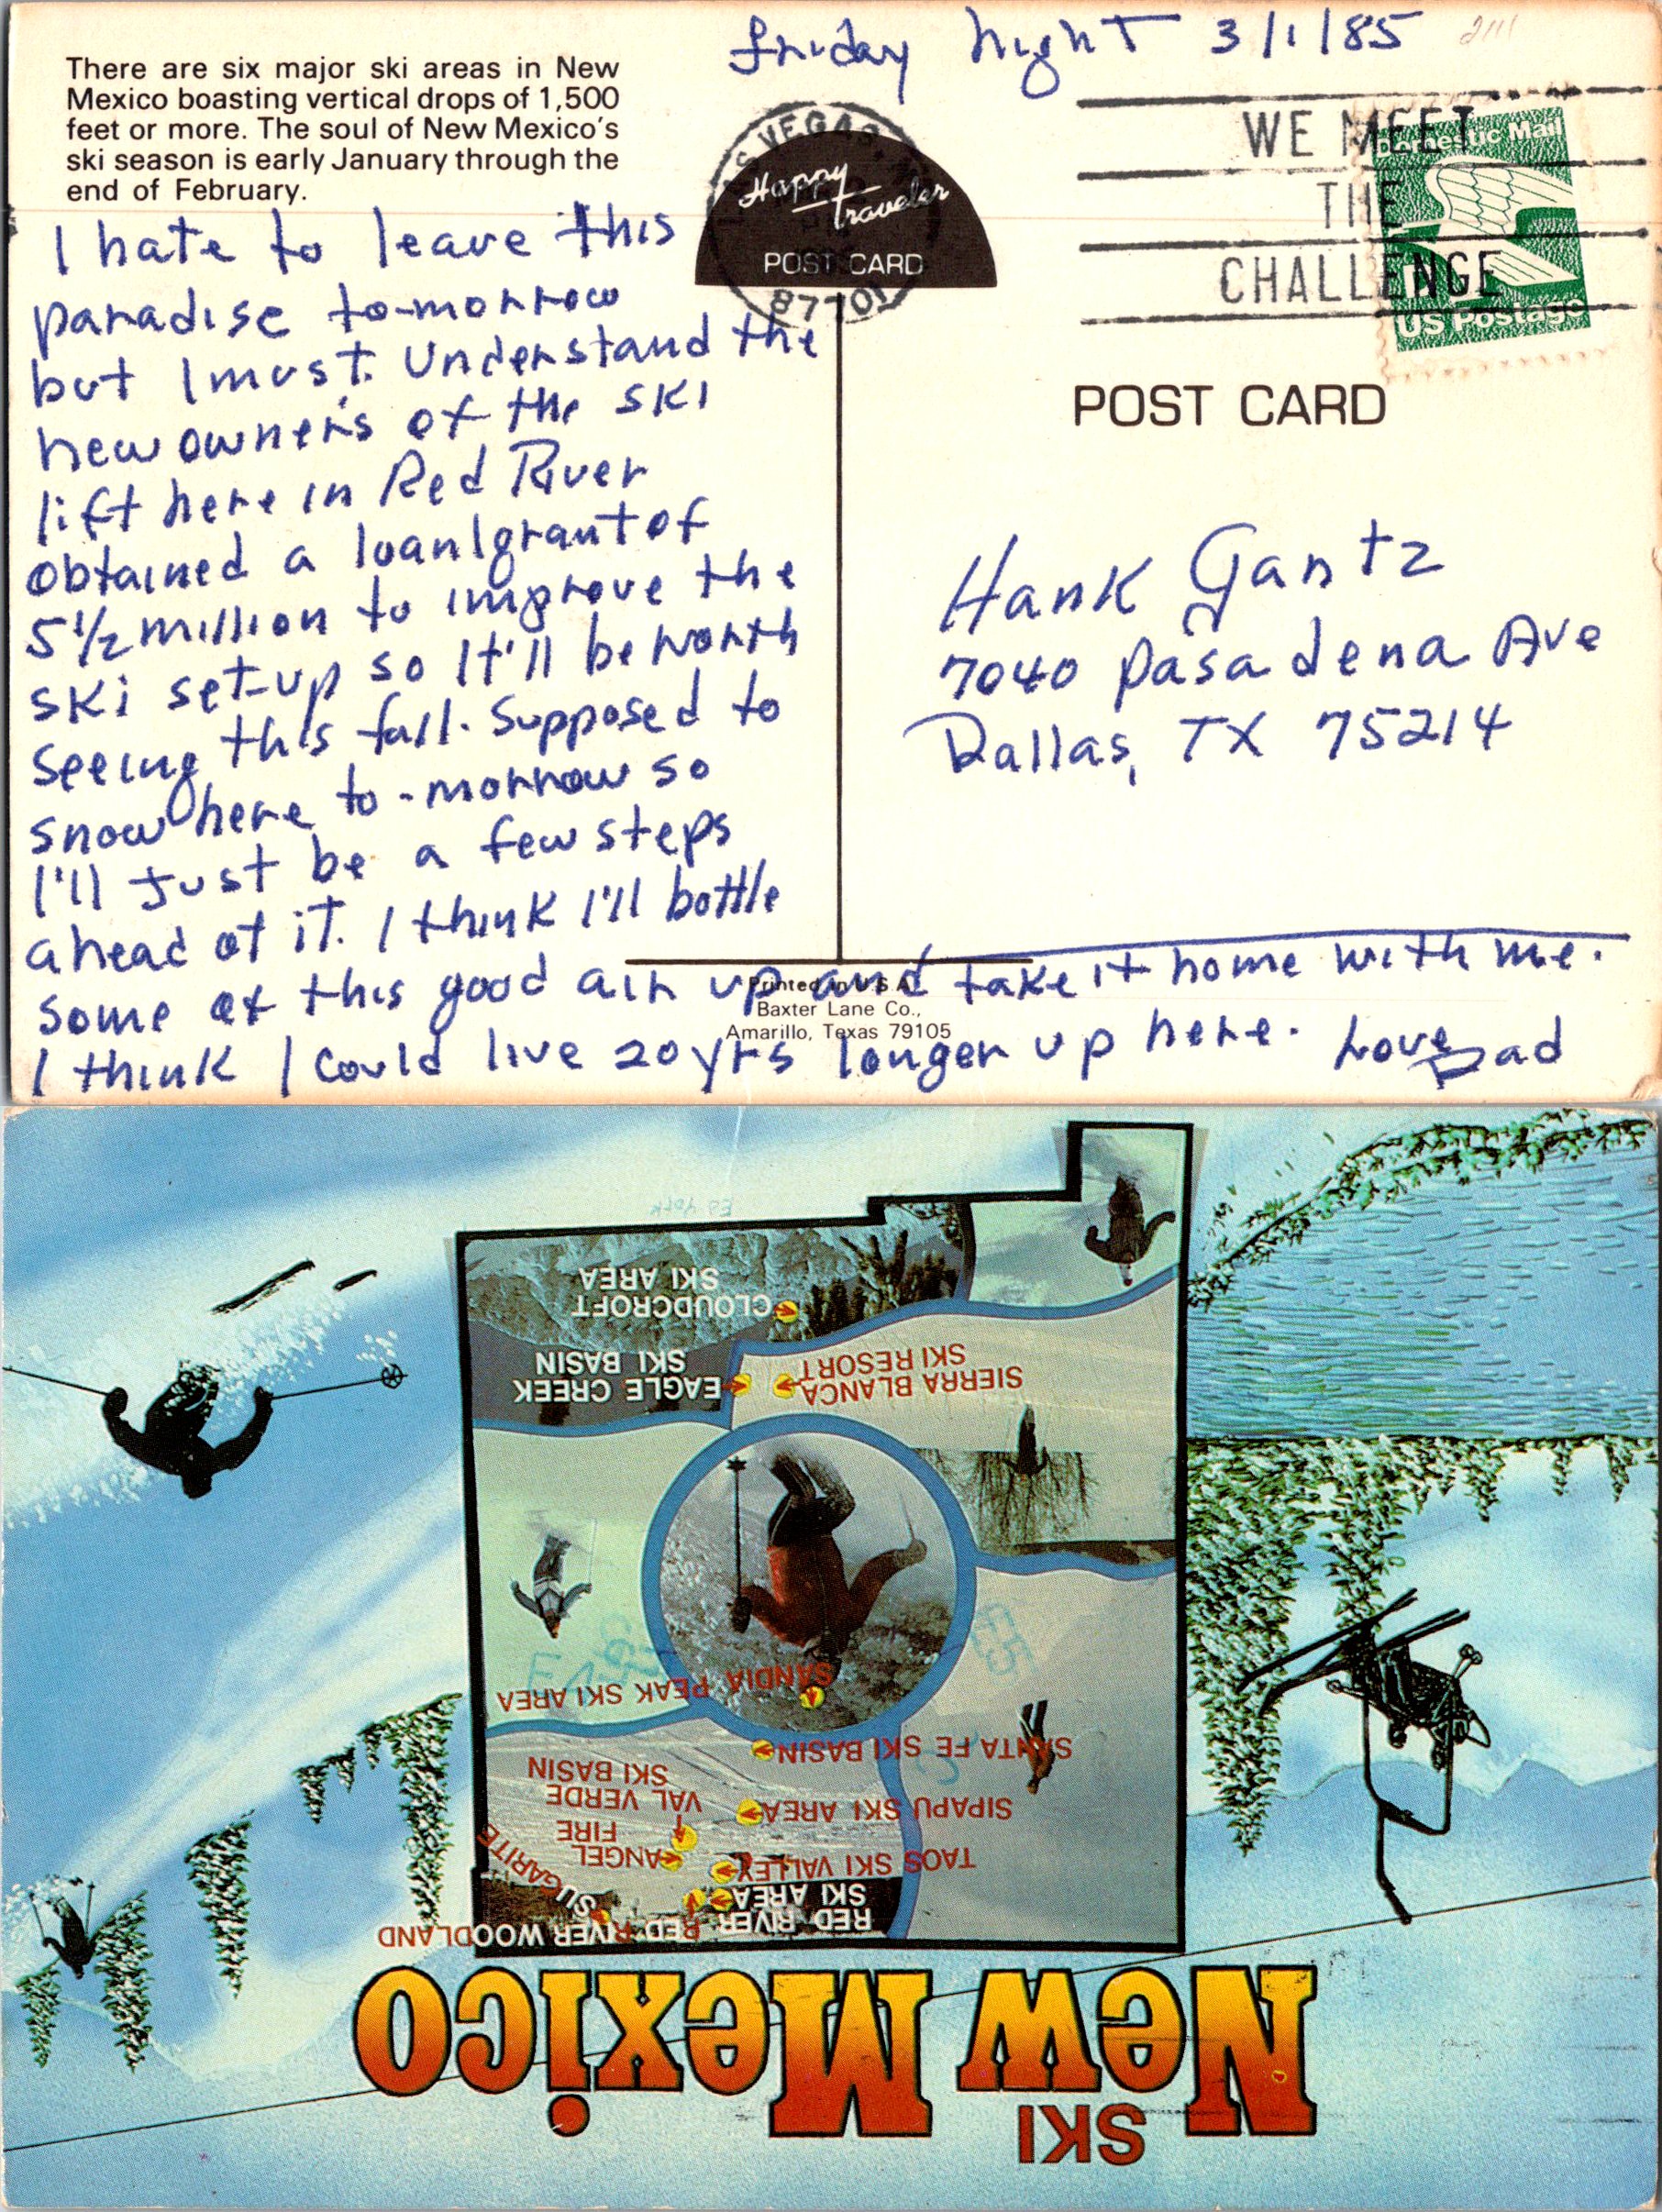 Friday night 3/1/85
There are six major ski areas in New
Mexico boasting vertical drops of 1,500
feet or more. The soul of New Mexico's
ski season is early January through the
end of February.
VEGAS,
87701
Happy
Traveler
POST CARD
WE MEET
THE
CHALLENGE
Domestic Mail
US Postage
POST CARD
I hate to leave this
paradise to-morrow
but I must. Understand the
new owners of the ski
lift here in Red River
obtained a loan/grant of
5 1/2 million to improve the
ski set-up so it'll be worth
seeing this fall. Supposed to
snow here to-morrow so
I'll just be a few steps
ahead of it. I think I'll bottle
some of this good air up and take it home with me.
I think I could live 20 yrs longer up here. Love, Dad
Hank Gantz
7040 Pasadena Ave
Dallas, TX 75214
Printed in U.S.A.
Baxter Lane Co.,
Amarillo, Texas 79105
SKI
New Mexico
RED RIVER
SKI AREA
RED RIVER WOODLAND
SUGARITE
TAOS SKI VALLEY
ANGEL
FIRE
SIPAPU SKI AREA
VAL VERDE
SKI BASIN
SANTA FE SKI BASIN
SANDIA PEAK SKI AREA
SIERRA BLANCA
SKI RESORT
EAGLE CREEK
SKI BASIN
CLOUDCROFT
SKI AREA